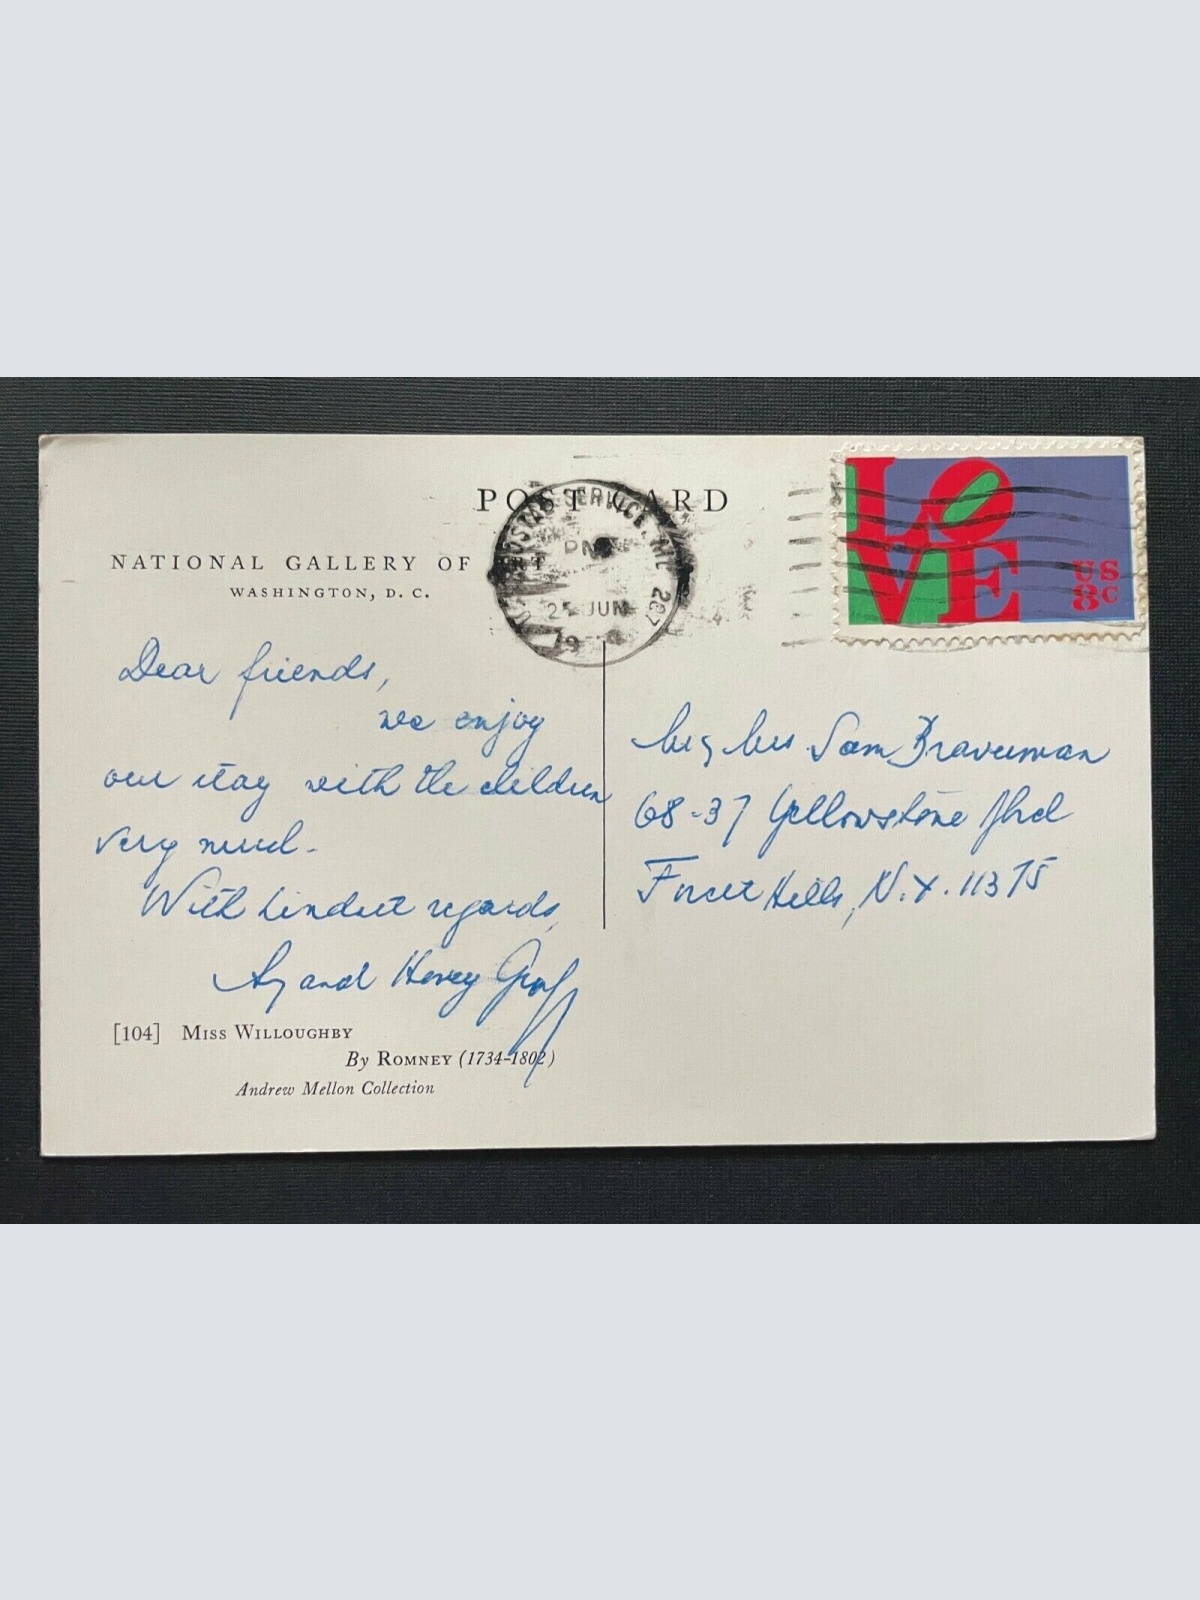 POST CARD
NATIONAL GALLERY OF ART
WASHINGTON, D. C.
U.S. POSTAL SERVICE, MD. 207
PM
25 JUN
19
LOVE
US
8c
Dear friends,
we enjoy
our stay with the children
very much.
With kindest regards,
and Henry
Mr & Mrs Sam Braverman
68-37 Yellowstone Blvd
Forest Hills, N.Y. 11375
[104] MISS WILLOUGHBY
By ROMNEY (1734-1802)
Andrew Mellon Collection